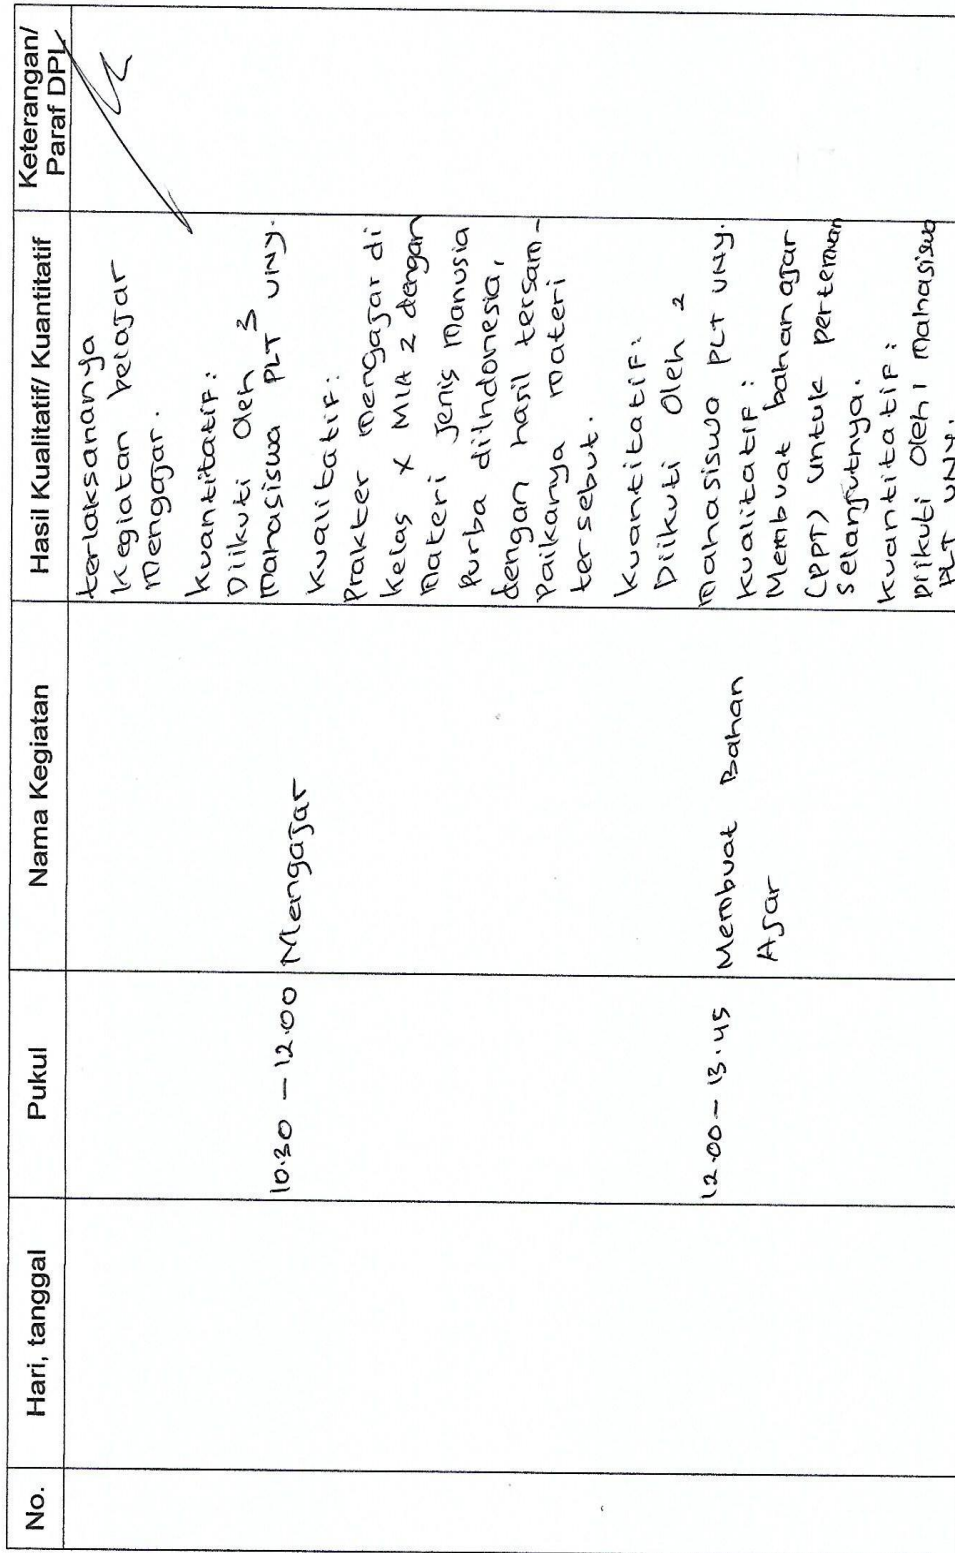 No.
Hari, tanggal
Pukul
Nama Kegiatan
Hasil Kualitatif/ Kuantitatif
Keterangan/
Paraf DPL
terlaksananya
kegiatan belajar
mengajar.
kuantitatif:
Diikuti Oleh 3
mahasiswa PLT UNY.
10.30 - 12.00
Mengajar
Kualitatif:
Prakter mengajar di
kelas X MIA 2 dengan
materi jenis Manusia
Purba diIndonesia,
dengan hasil tersam-
paikanya materi
tersebut.
kuantitatif:
Diikuti Oleh 2
mahasiswa PLT UNY.
12.00 - 13.45
Membuat Bahan
Ajar
kualitatif:
Membuat bahan ajar
(PPT) untuk pertemuan
selanjutnya.
kuantitatif:
Diikuti Oleh 1 Mahasiswa
PLT UNY.